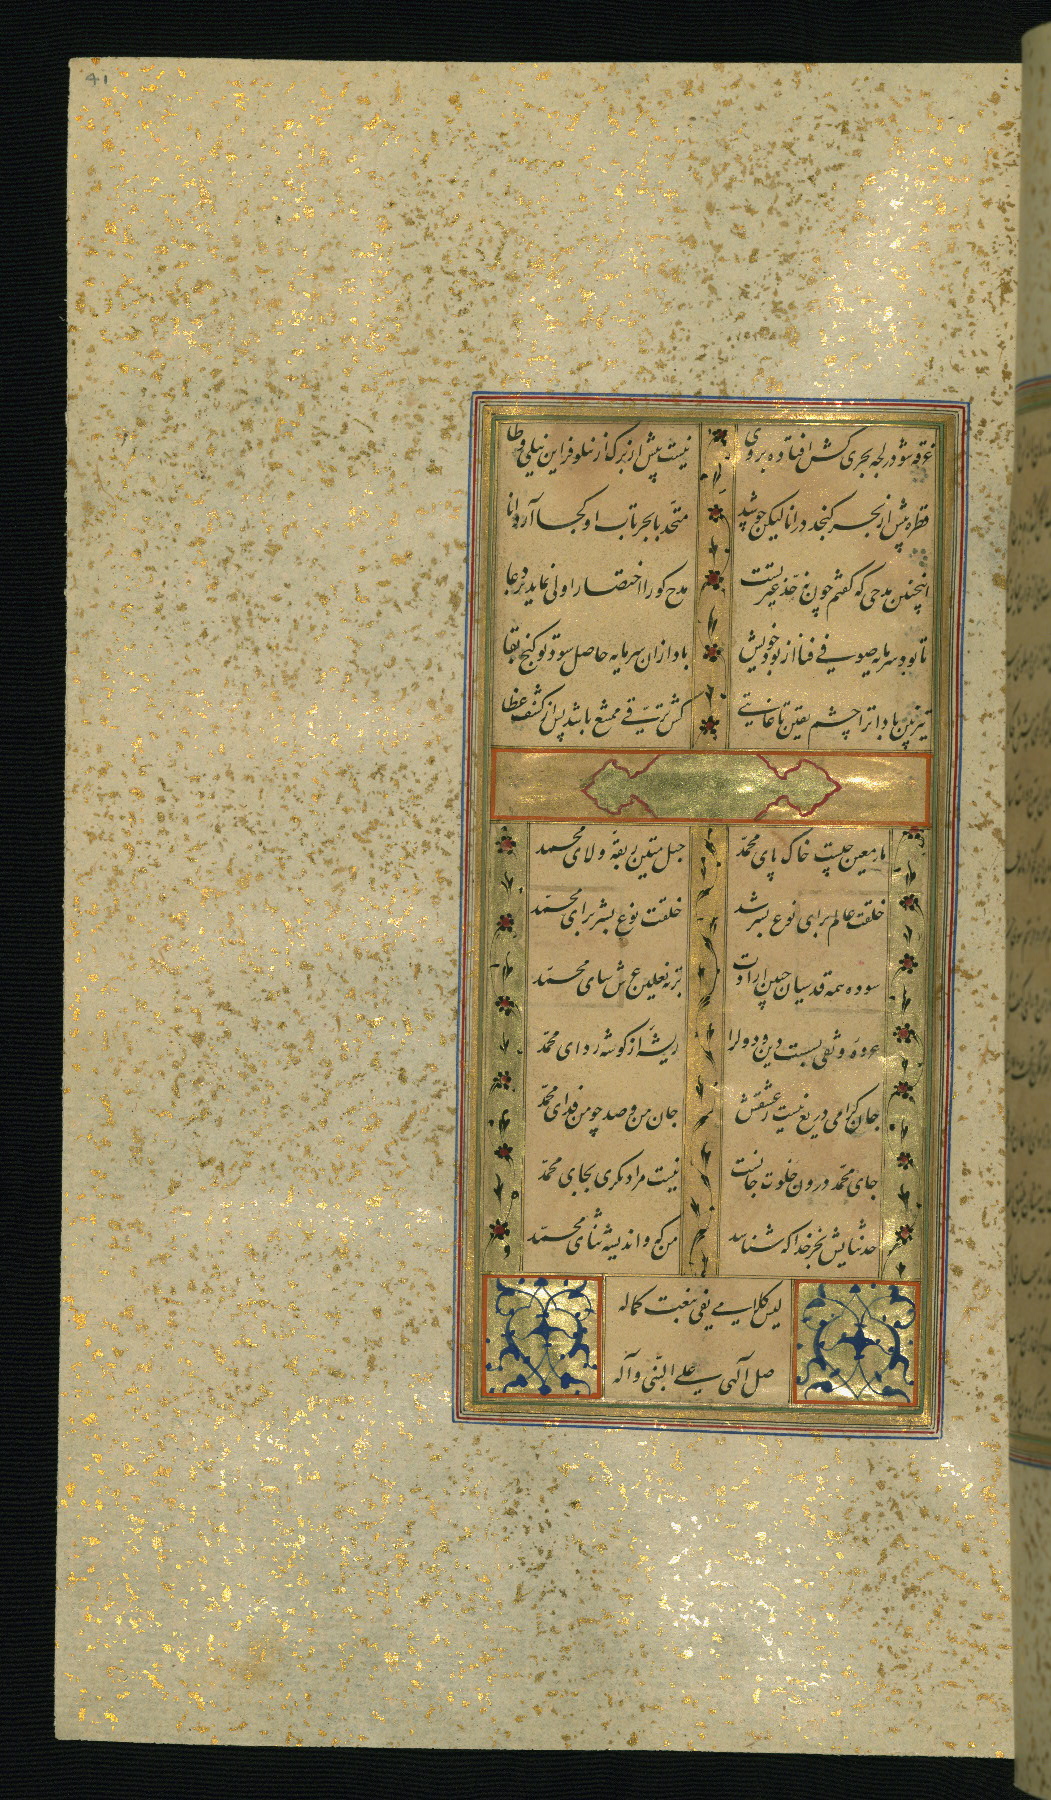 41
غرقه شو در لجه بحری کش افتاده بروی نیست بیش از برک از نیلوفر این نیلی وطا
قطره بیش از بحر کنجد در انا لیکن چو شد متحد با بحر تاب او کجا آرد انا
اینچنین مدحی که کفتم چون نه حد غیر تست مدح کو را اختصار اولی نماید در دعا
تا بود سرمایه صوفی فنا از بود خویش بادا زان سرمایه حاصل سود تو کنج بقا
تیزبین بادا ترا چشم یقین تا غایتی کش ترقی ممتنع باشد پس از کشف غطا
ماء معین چیست خاک پای محمد حبل متین ربقه ولای محمد
خلقت عالم برای نوع بشر شد خلقت نوع بشر برای محمد
سوده همه قدسیان جبین ارادت بر ته نعلین عرش سای محمد
عروه وثقی بسست دین و دول را ریشه از کوشه ردای محمد
جان کرامی دریغ نیست ز عشقش جان من و صد چو من فدای محمد
جای محمد درون خلوت جانست نیست مرا دیکری بجای محمد
حد ثنایش بجز خدا که شناسد من که و اندیشه ثنای محمد
لیس کلامی یفی بنعت کماله
صل الهی علی النبی و آله